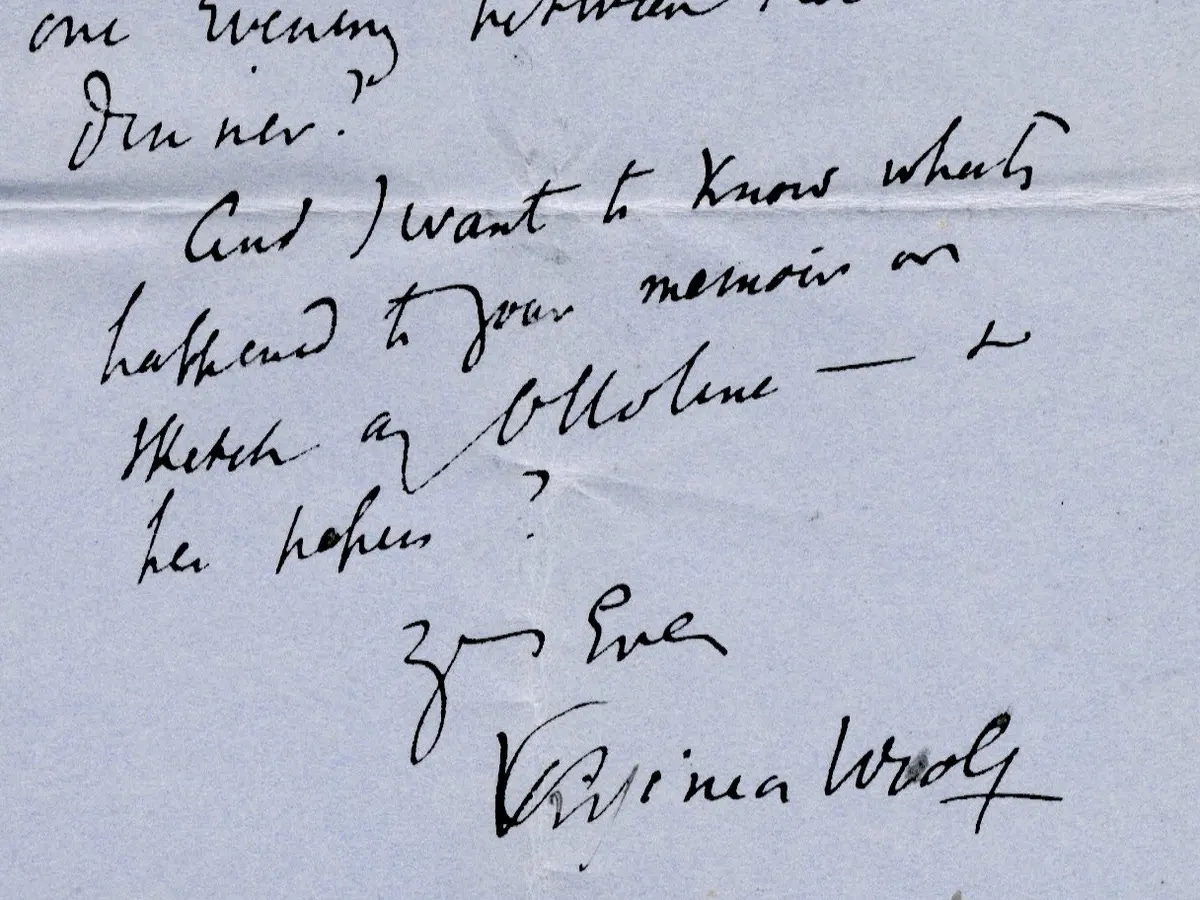 one Evening between
Dinner?
And I want to know whats
happened to your memoir or
sketch of Ottoline — &
her papers ?
Yrs Ever
Virginia Woolf